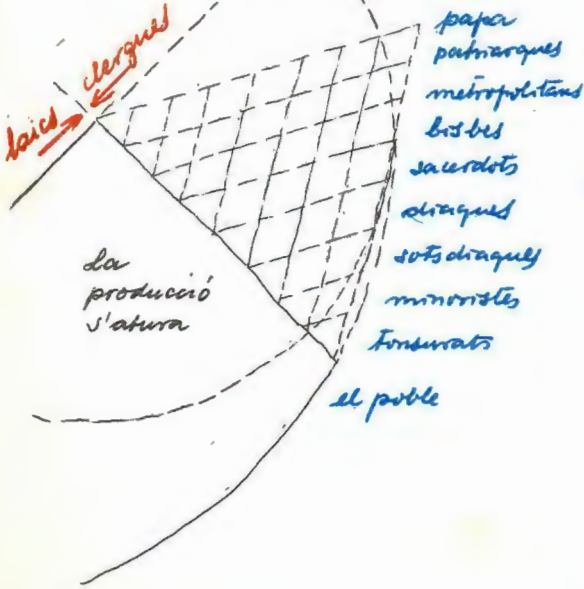 clergues
laics
papa
patriarques
metropolitans
bisbes
sacerdots
diaques
sotsdiaques
minoristes
tonsurats
el poble
La
producció
s'atura